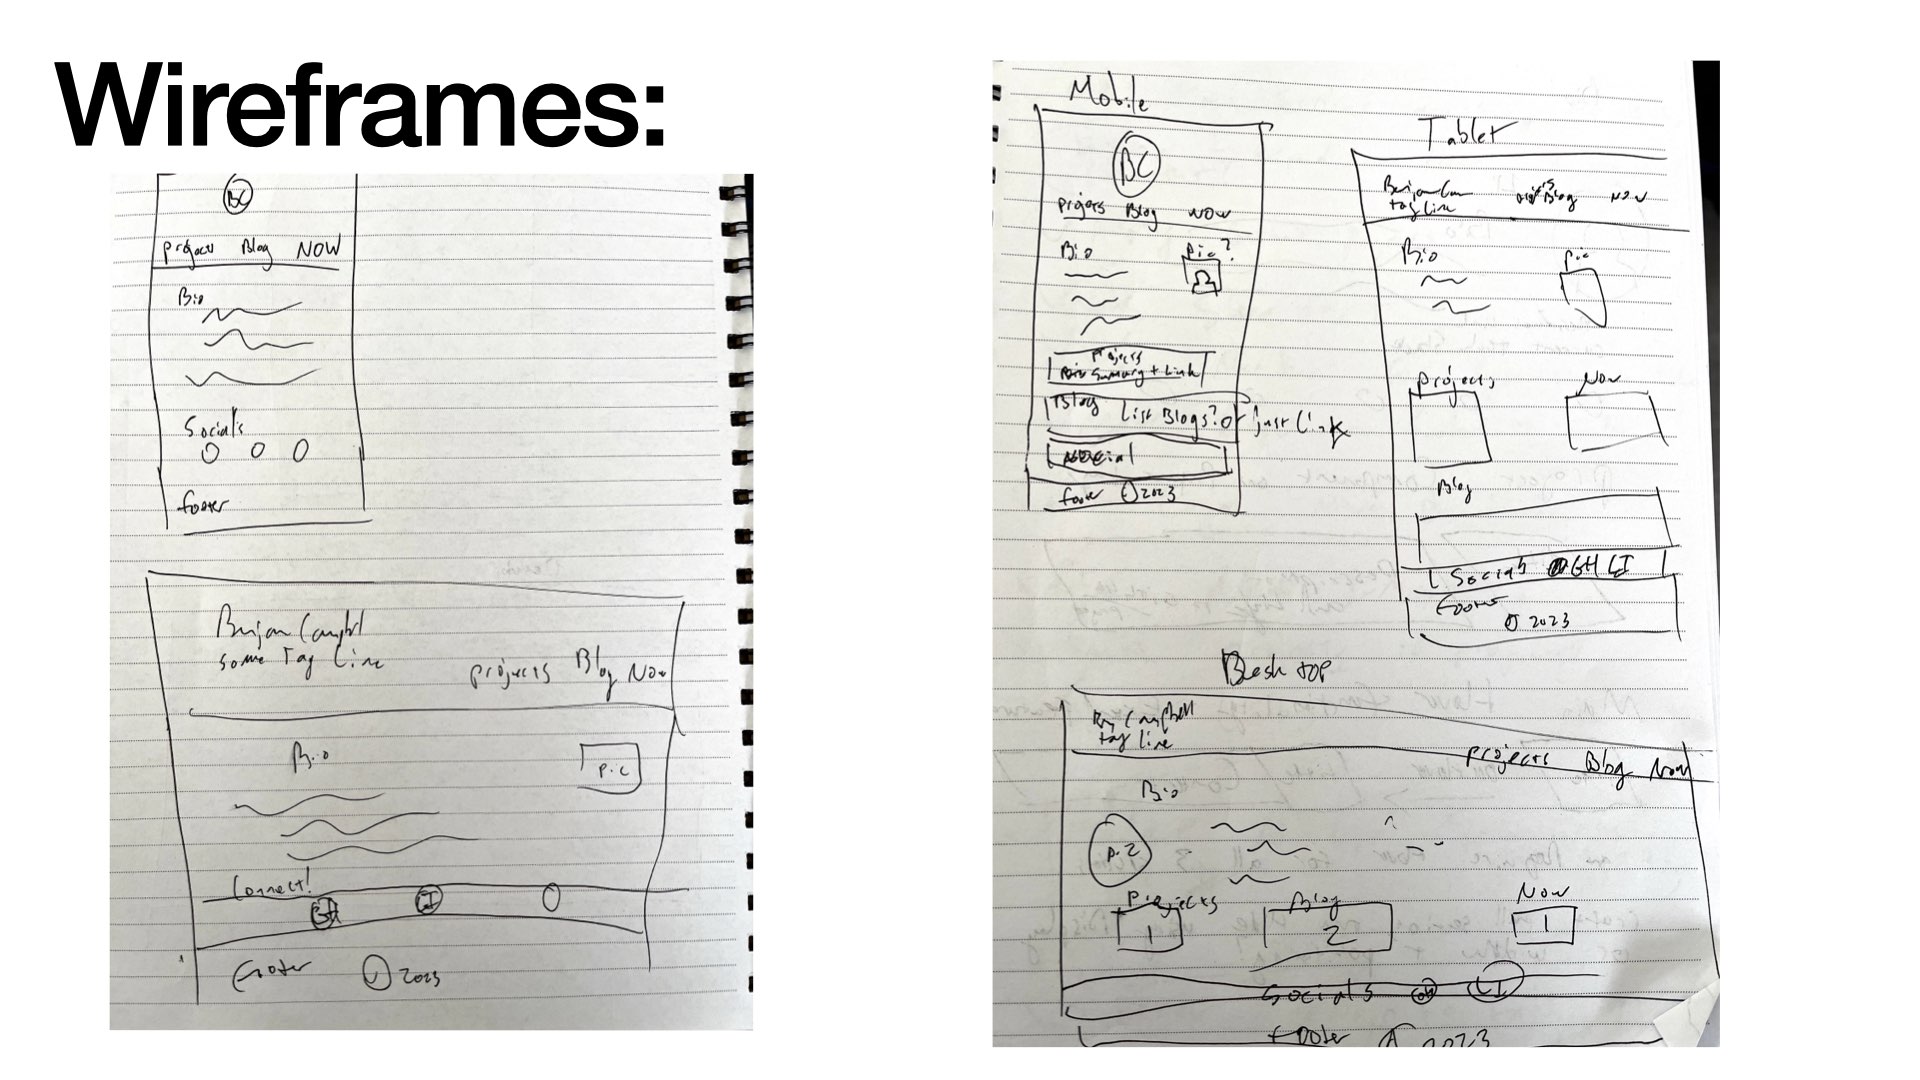 Wireframes:
BC
projects Blog NOW
Bio
Socials
footer
some Tag Line
projects Blog Now
Bio
pic
Connect!
GH LI
Footer © 2023
Mobile
BC
projects Blog NOW
Bio pic?
projects
Summary + Link
Blog List Blogs? or just link
footer © 2023
Tablet
tag Line Blog NOW
Bio pic
projects Now
Blog
Socials GH LI
Footer
© 2023
Desktop
Ben Campbell
tag line
projects Blog Now
Bio
pic
Projects Blog Now
1 2 1
Socials GH LI
footer © 2023